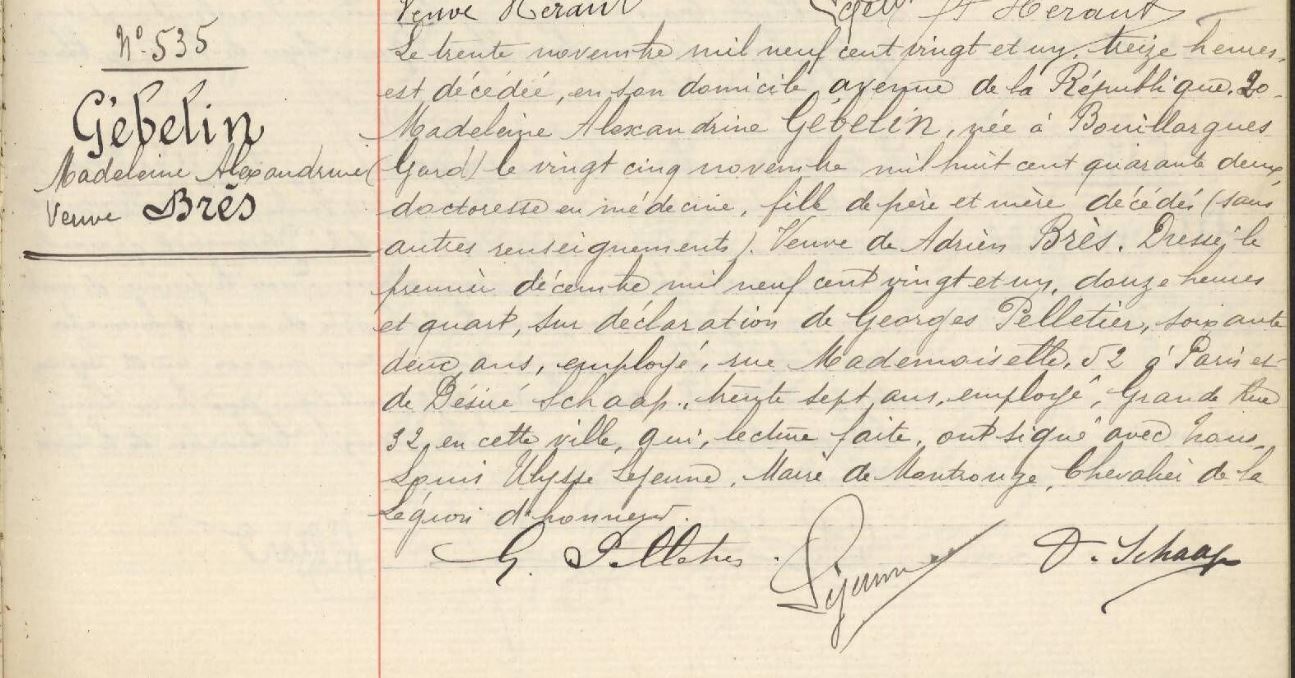 Veuve Heraut
Nº 535
Gébelin
Madeleine Alexandrine
Veuve Brès
Le trente novembre mil neuf cent vingt et un, treize heures,
est décédée, en son domicile avenue de la République, 20
Madeleine Alexandrine Gébelin, née à Bouillargues
(Gard) le vingt cinq novembre mil huit cent quarante deux,
doctoresse en médecine, fille de père et mère décédés (sans
autres renseignements). Veuve de Adrien Brès. Dressé le
premier décembre mil neuf cent vingt et un, douze heures
et quart, sur déclaration de Georges Pelletier, soixante
deux ans, employé, rue Mademoiselle, 52 à Paris et
de Désiré Schaap, trente sept ans, employé, Grande Rue
32, en cette ville, qui, lecture faite, ont signé avec nous,
Louis Ulysse Lejeune, Maire de Montrouge, Chevalier de la
Légion d'honneur.
G. Pelletier
Lejeune
D. Schaap